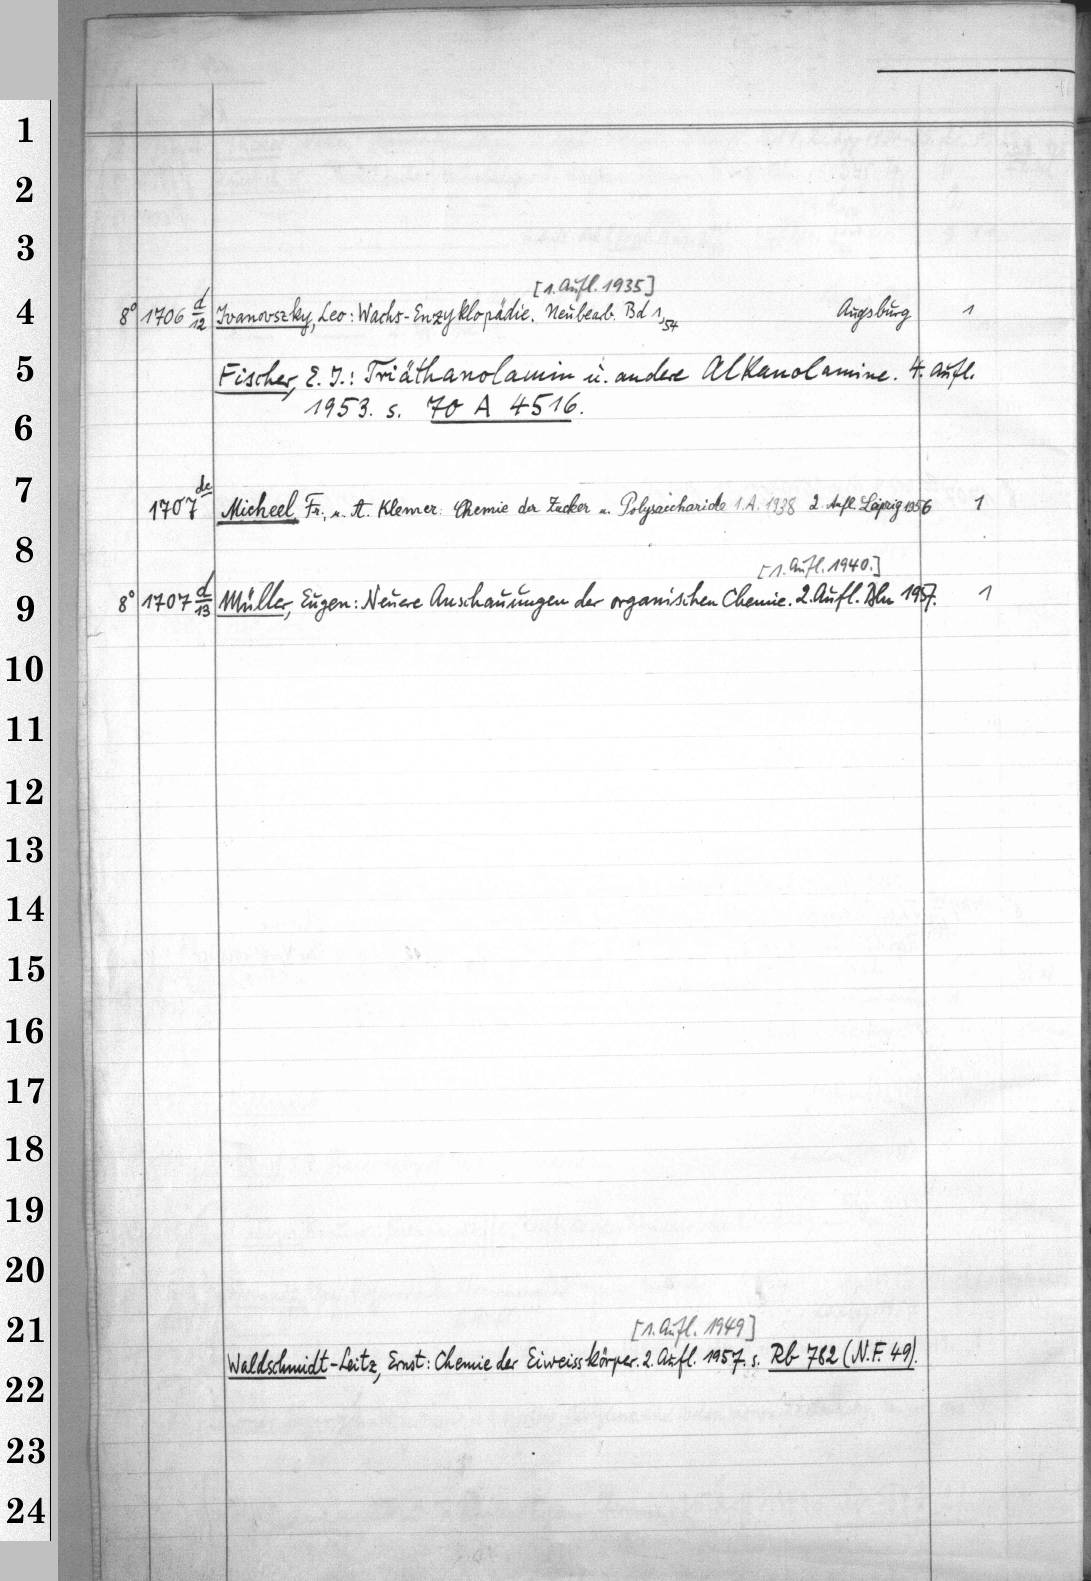 1
2
3
[1. Aufl. 1935]
4 8° 1706 d/12 Ivanovszky, Leo: Wachs-Enzyklopädie. Neubearb. Bd 1, 54 Augsburg 1
5 Fischer, E. J.: Triäthanolamin u. andere Alkanolamine. 4. Aufl.
6 1953. s. 70 A 4516.
7
1707 de Micheel Fr., u. A. Klemer: Chemie der Zucker u. Polysaccharide 1. A. 1938 2. Aufl. Leipzig 1956 1
8
[1. Aufl. 1940.]
9 8° 1707 d/13 Müller, Eugen: Neuere Anschauungen der organischen Chemie. 2. Aufl. Bln 1957. 1
10
11
12
13
14
15
16
17
18
19
20
21 [1. Aufl. 1949]
Waldschmidt-Leitz, Ernst: Chemie der Eiweisskörper. 2. Aufl. 1957. s. Rb 762 (N.F. 49).
22
23
24